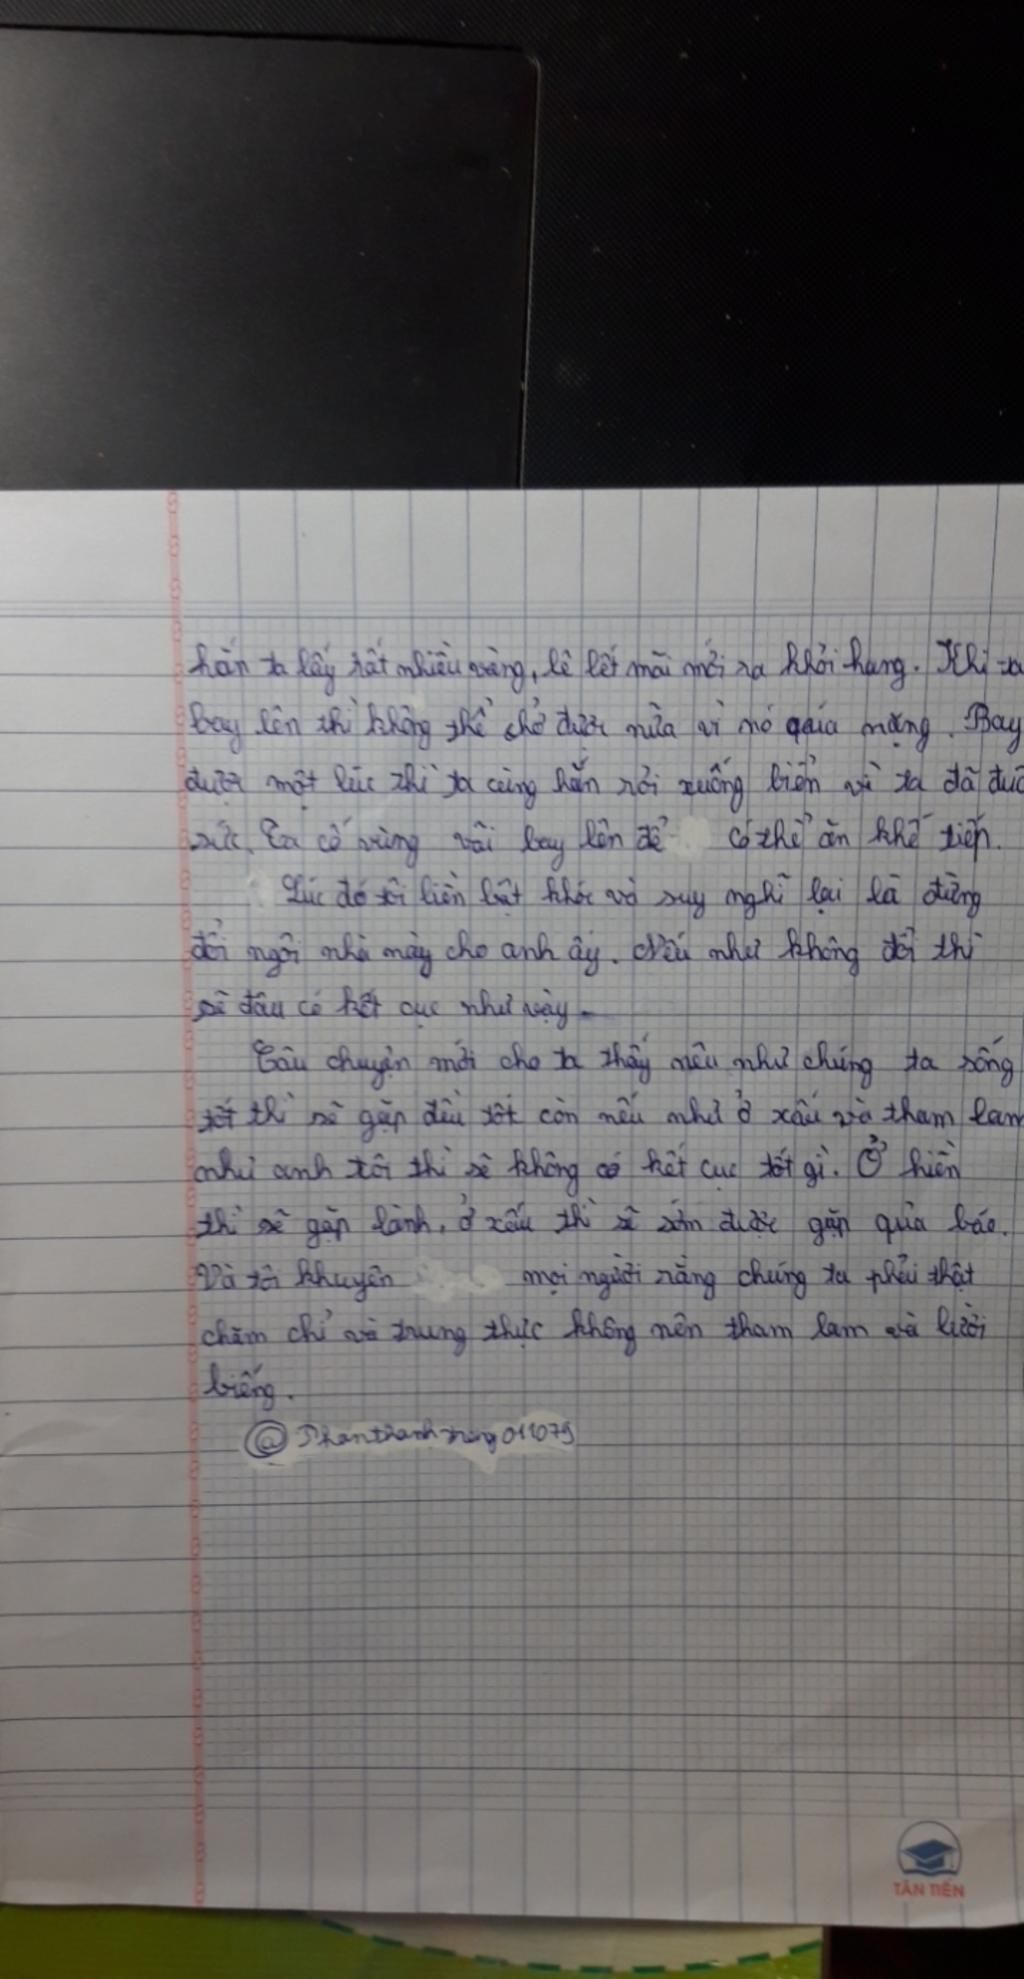 hắn ta lấy rất nhiều vàng, lê lết mãi mới ra khỏi hang. Khi ta
bay lên thì không thể chở được nữa vì nó quía nặng. Bay
được một lúc thì ta cùng hắn rơi xuống biển vì ta đã đuố
sức. Ta cố vùng vẫi bay lên để có thể ăn khế tiếp.
Lúc đó tôi liền bật khóc và suy nghĩ lại là đừng
đổi ngôi nhà này cho anh ấy. Nếu như không đổi thì
sẽ đâu có kết cục như vậy.
Câu chuyện mới cho ta thấy nếu như chúng ta sống
tốt thì sẽ gặp điều tốt còn nếu như ở xấu và tham lam
như anh tôi thì sẽ không có kết cục tốt gì. Ở hiền
thì sẽ gặp lành, ở xấu thì sẽ sớm được gặp quả báo.
Và tôi khuyên mọi người rằng chúng ta phải thật
chăm chỉ và trung thực không nên tham lam và lười
biếng.
@
TÂN TIẾN